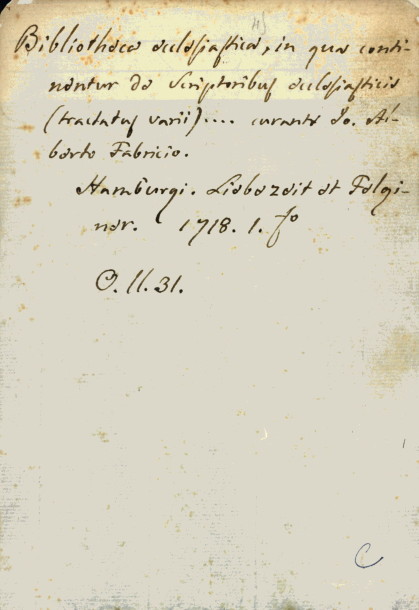 Bibliotheca ecclesiastica, in qua conti-
nentur de Scriptoribus ecclesiasticis
(tractatus varii).... curante Jo. Al-
berto Fabricio.
Hamburgi. Liebezeit et Felgi-
ner. 1718. 1. fo
O. II. 31.
C